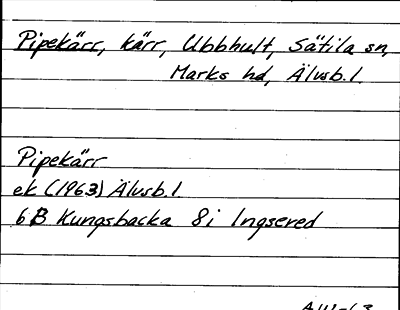 Pipekärr, kärr, Ubbhult, Sätila sn,
Marks hd, Älvsb. l.
Pipekärr
ek (1963) Älvsb. l.
6 B Kungsbacka 8i Ingsered